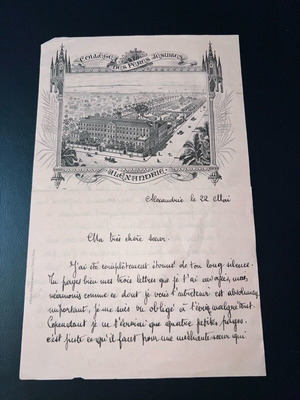 COLLÈGE
DES PÈRES JÉSUITES
ALEXANDRIE
Alexandrie le 22 Mai
Ma très chère sœur.
J'ai été complètement étonné de ton long silence.
Tu payes bien mes trois lettres que je t'ai envoyées, mais
néanmoins comme ce dont je veux t'entretenir est absolument
important, je me suis vu obligé à t'écrire malgré tout.
Cependant je ne t'enverrai que quatre petites pages.
c'est juste ce qu'il faut pour une méchante sœur qui